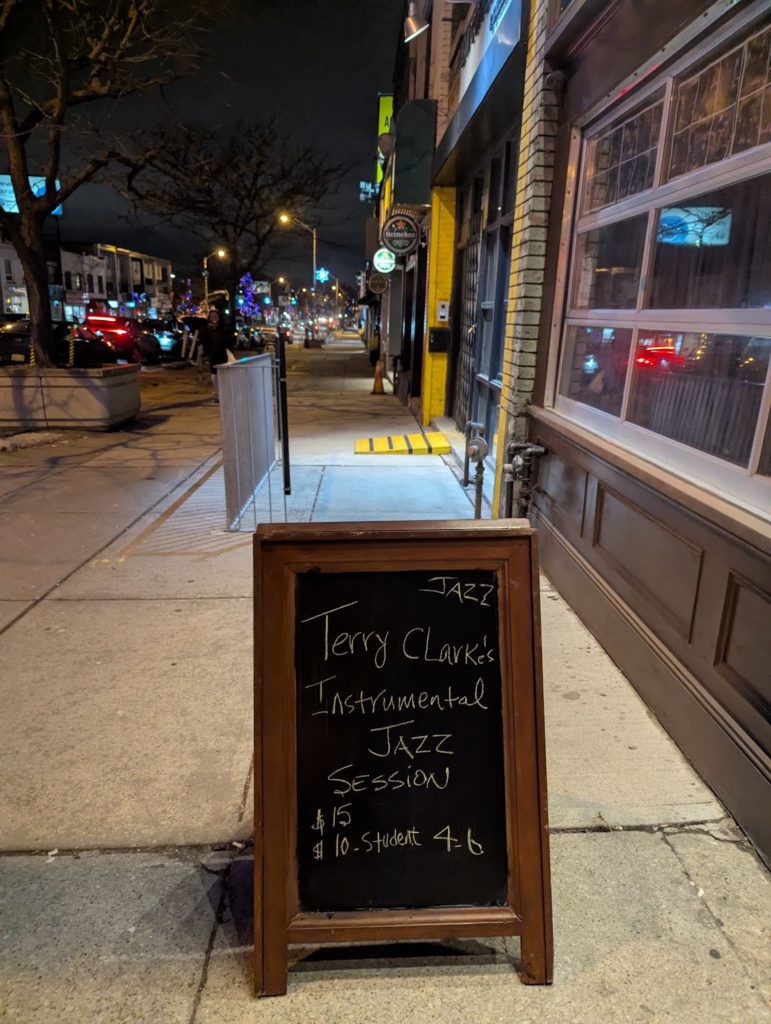 Heineken
JAZZ
Terry Clarke's
Instrumental
JAZZ
SESSION
$15
$10-Student 4-6